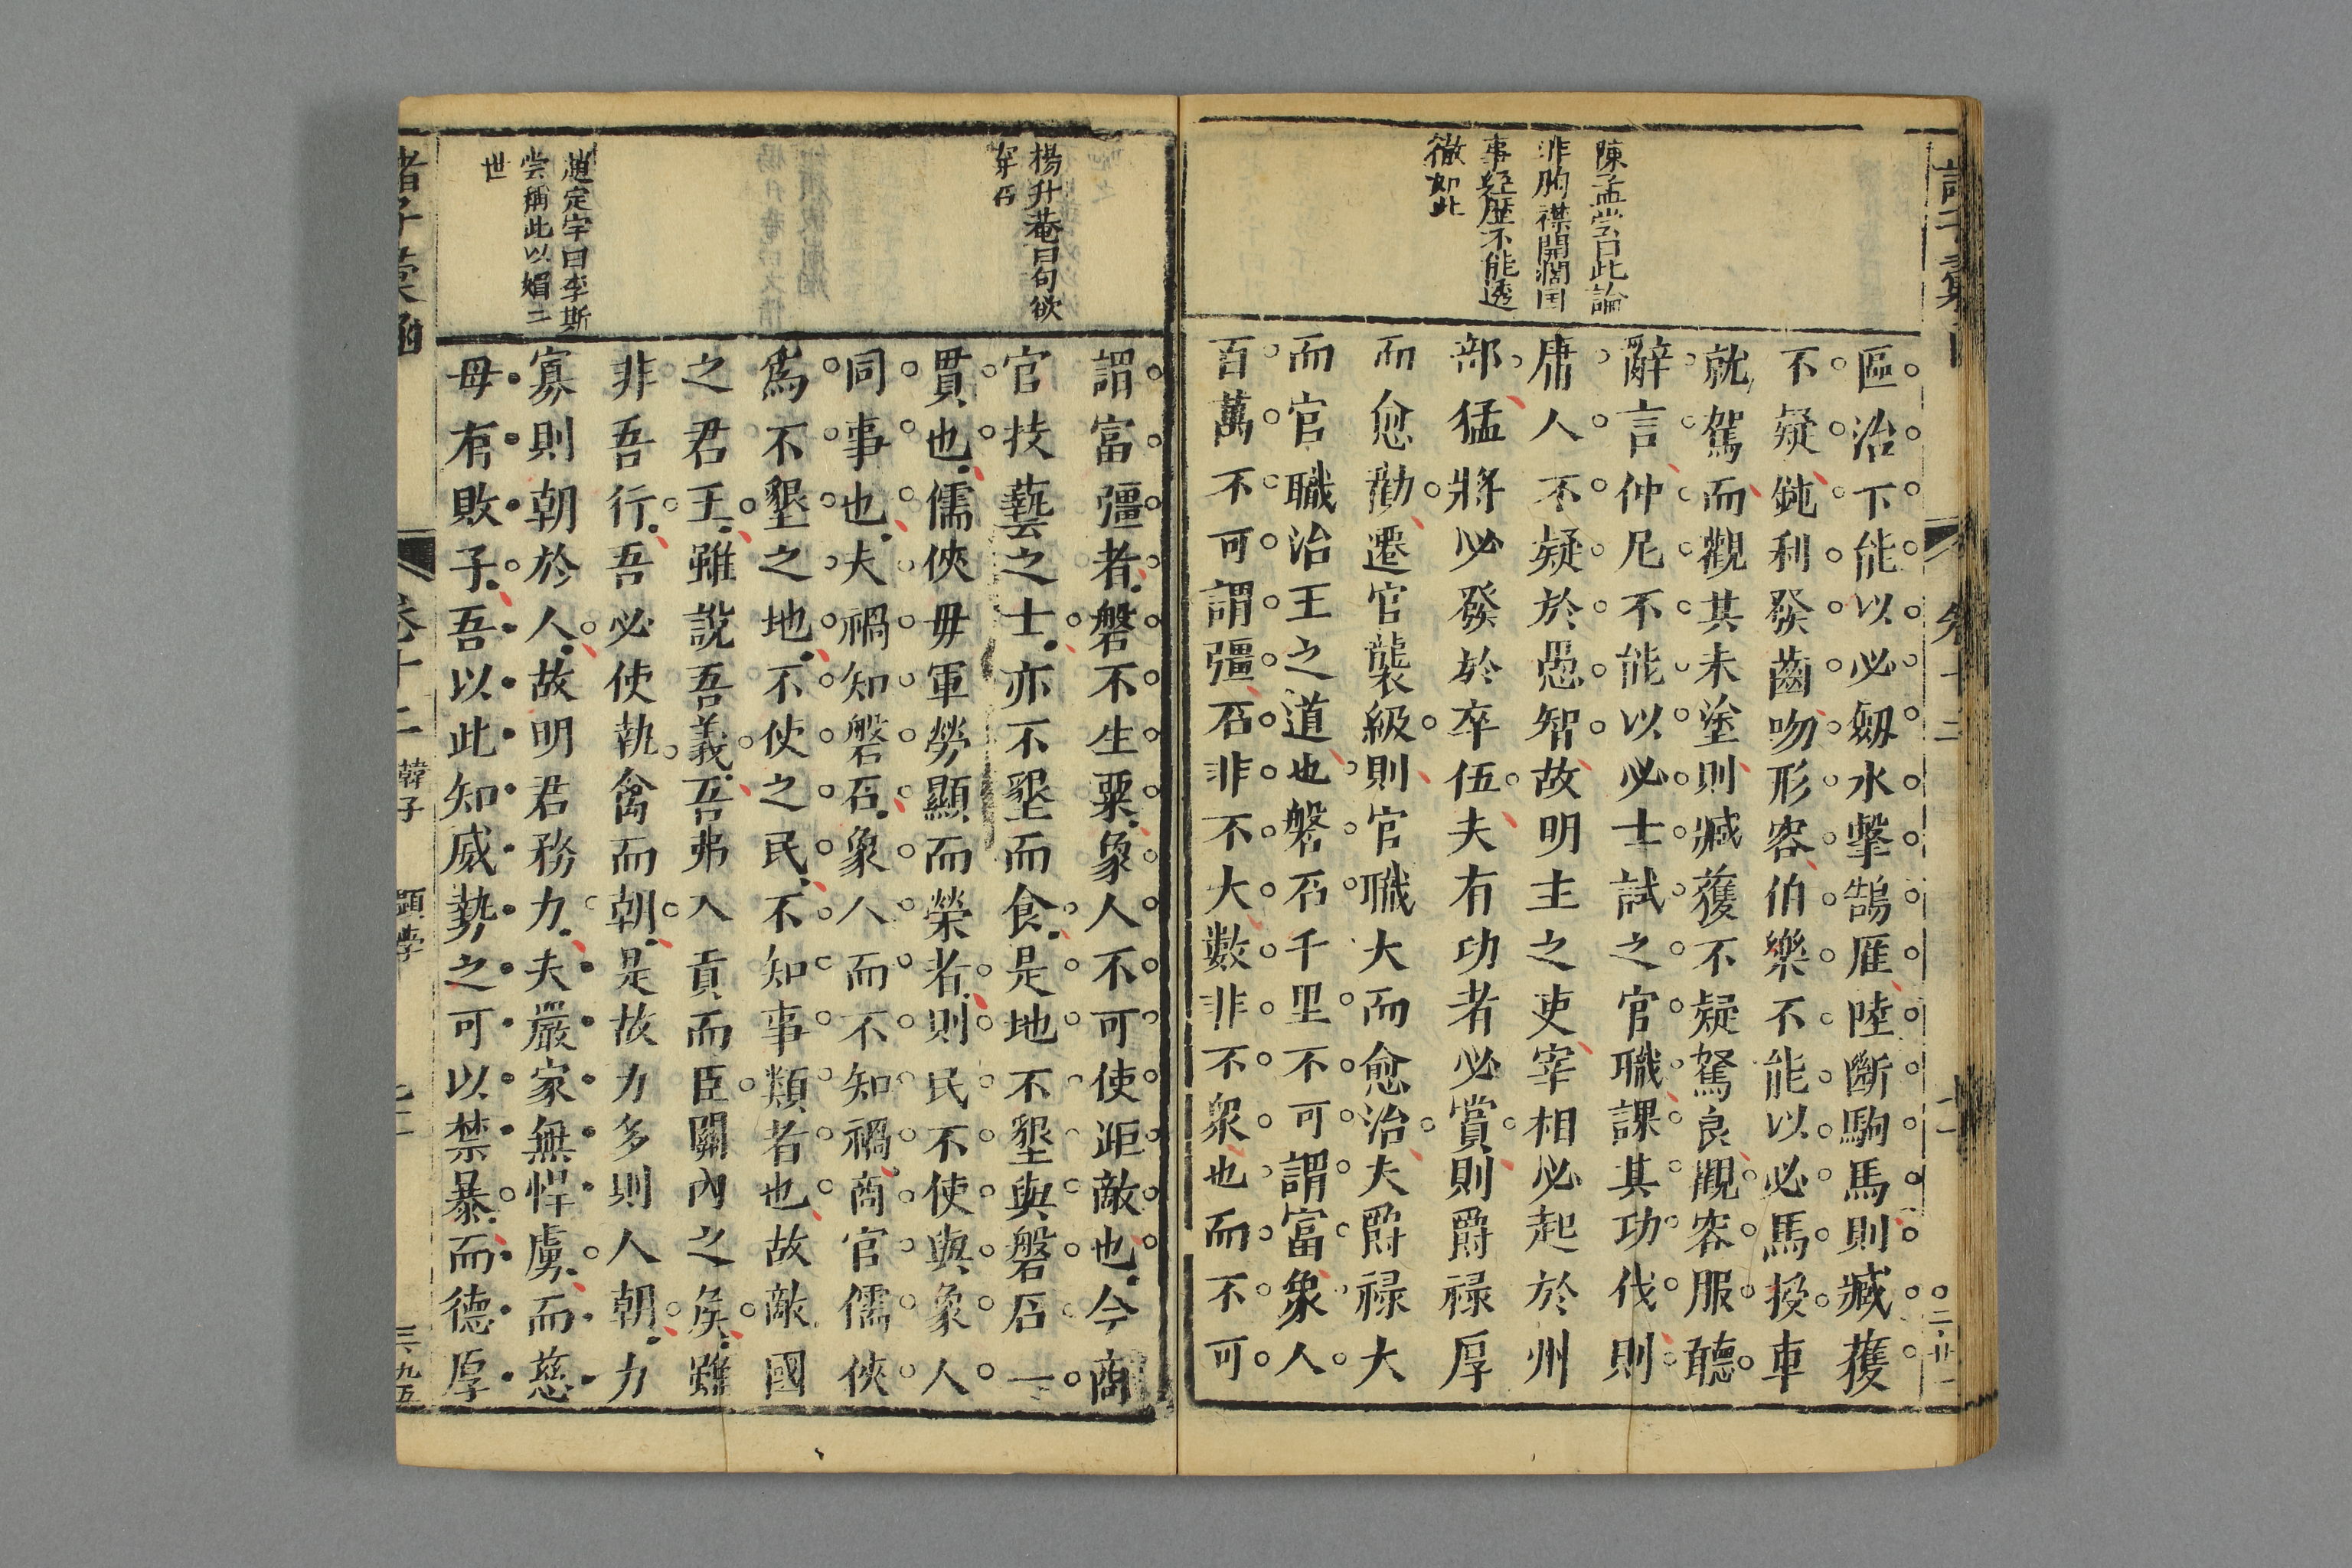 陳孟常曰此論
非胸襟開濶国
事經歷不能透
徹如此
區治下能以必劔水擊鵠雁陸斷駒馬則臧獲
不疑鈍利發齒吻形容伯樂不能以必馬授車
就駕而觀其末塗則臧獲不疑駑良觀容服聽
辭言仲尼不能以必士試之官職課其功伐則
庸人不疑於愚智故明主之吏宰相必起於州
部猛將必發於卒伍夫有功者必賞則爵祿厚
而愈勸遷官襲級則官職大而愈治夫爵祿大
而官職治王之道也磐石千里不可謂富象人
百萬不可謂彊石非不大數非不衆也而不可
楊升菴曰句欲
穿石
趙定宇曰李斯
尝稱此以媚二
世
謂富彊者磐不生粟象人不可使距敵也今商
官技藝之士亦不墾而食是地不墾與磐石一
貫也儒俠毋軍勞顯而榮者則民不使與象人
同事也夫禍知磐石象人而不知禍商官儒俠
爲不墾之地不使之民不知事類者也故敵國
之君王雖說吾義吾弗入貢而臣關內之侯雖
非吾行吾必使執禽而朝是故力多則人朝力
寡則朝於人故明君務力夫嚴家無悍虜而慈
毋有敗子吾以此知威勢之可以禁暴而德厚
卷十二 韓子 顯學